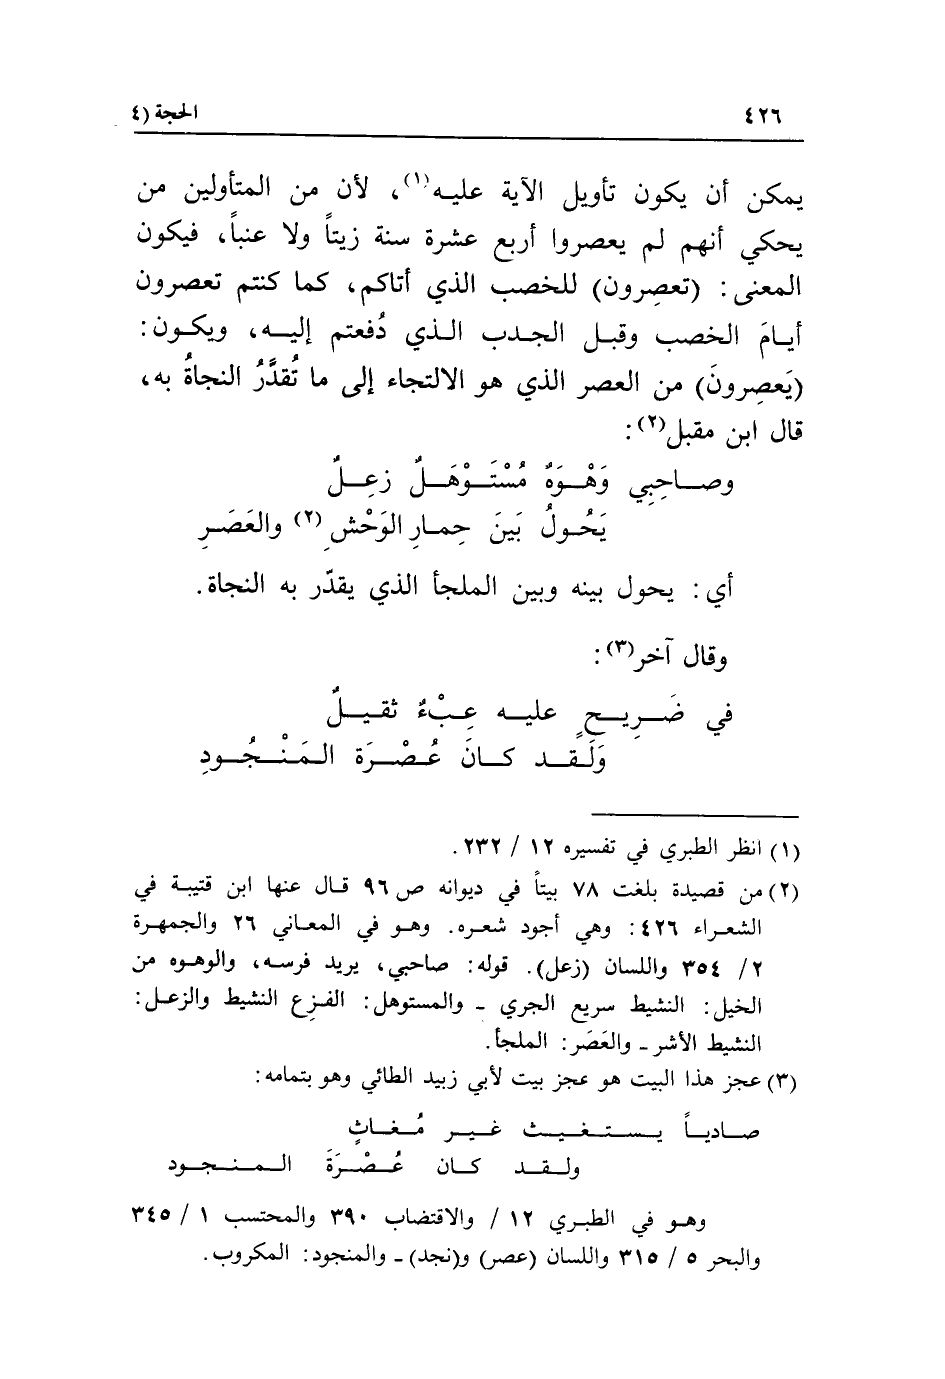 ٤٢٦ الحجة (٤
يمكن أن يكون تأويل الآية عليه(١)، لأن من المتأولين من
يحكي أنهم لم يعصروا أربع عشرة سنة زيتاً ولا عنباً، فيكون
المعنى: (تعصِرون) للخصب الذي أتاكم، كما كنتم تعصرون
أيامَ الخصب وقبل الجدب الذي دُفعتم إليه، ويكون:
(يَعصِرونَ) من العصر الذي هو الالتجاء إلى ما تُقدَّرُ النجاةُ به،
قال ابن مقبل(٢):
وصاحِبِي وَهْوَهٌ مُسْتَوْهَلٌ زعِلٌ
يَحُولُ بَينَ حِمارِ الوَحْشِ(٢) والعَصَرِ
أي: يحول بينه وبين الملجأ الذي يقدّر به النجاة.
وقال آخر(٣):
في ضَرِيحٍ عليه عِبْءٌ ثقيلٌ
وَلَقد كانَ عُصْرَة المَنْجُودِ
(١) انظر الطبري في تفسيره ١٢ / ٢٣٢.
(٢) من قصيدة بلغت ٧٨ بيتاً في ديوانه ص ٩٦ قال عنها ابن قتيبة في
الشعراء ٤٢٦: وهي أجود شعره. وهو في المعاني ٢٦ والجمهرة
٢/ ٣٥٤ واللسان (زعل). قوله: صاحبي، يريد فرسه، والوهوه من
الخيل: النشيط سريع الجري - والمستوهل: الفزع النشيط والزعل:
النشيط الأشر - والعَصَر: الملجأ.
(٣) عجز هذا البيت هو عجز بيت لأبي زبيد الطائي وهو بتمامه:
صادياً يستغيث غير مُغاثٍ
ولقد كان عُصْرَةَ المنجود
وهو في الطبري ١٢ / والاقتضاب ٣٩٠ والمحتسب ١ / ٣٤٥
والبحر ٥ / ٣١٥ واللسان (عصر) و(نجد) - والمنجود: المكروب.